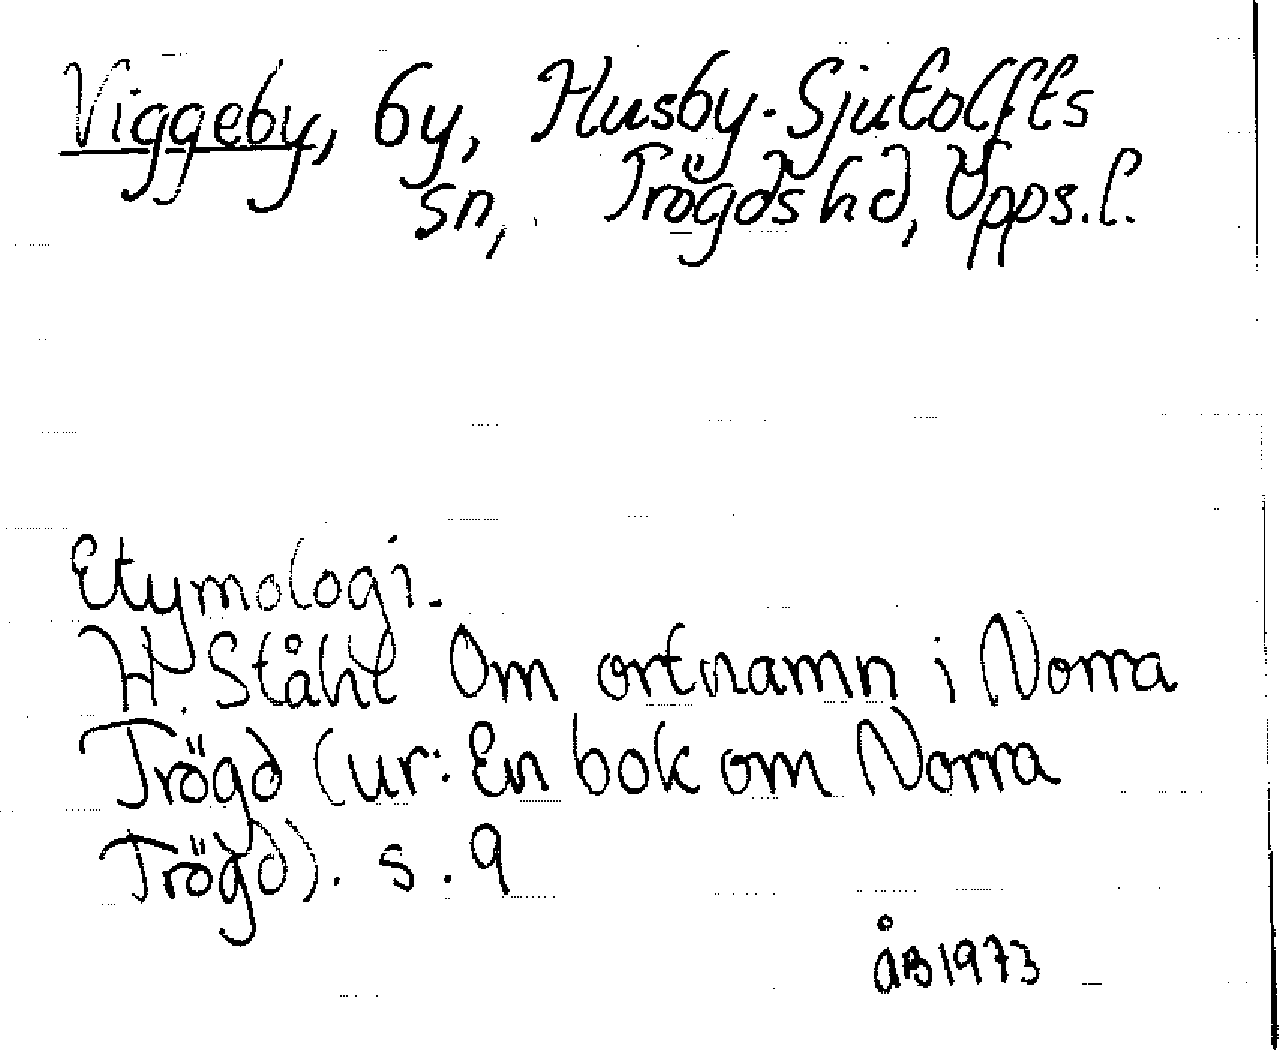 Viggeby, by, Husby-Sjutolfts
sn, Trögds hd, Upps.l.
Etymologi.
H. Ståhl Om ortnamn i Norra
Trögd (ur: En bok om Norra
Trögd). s. 9
ÅB 1973